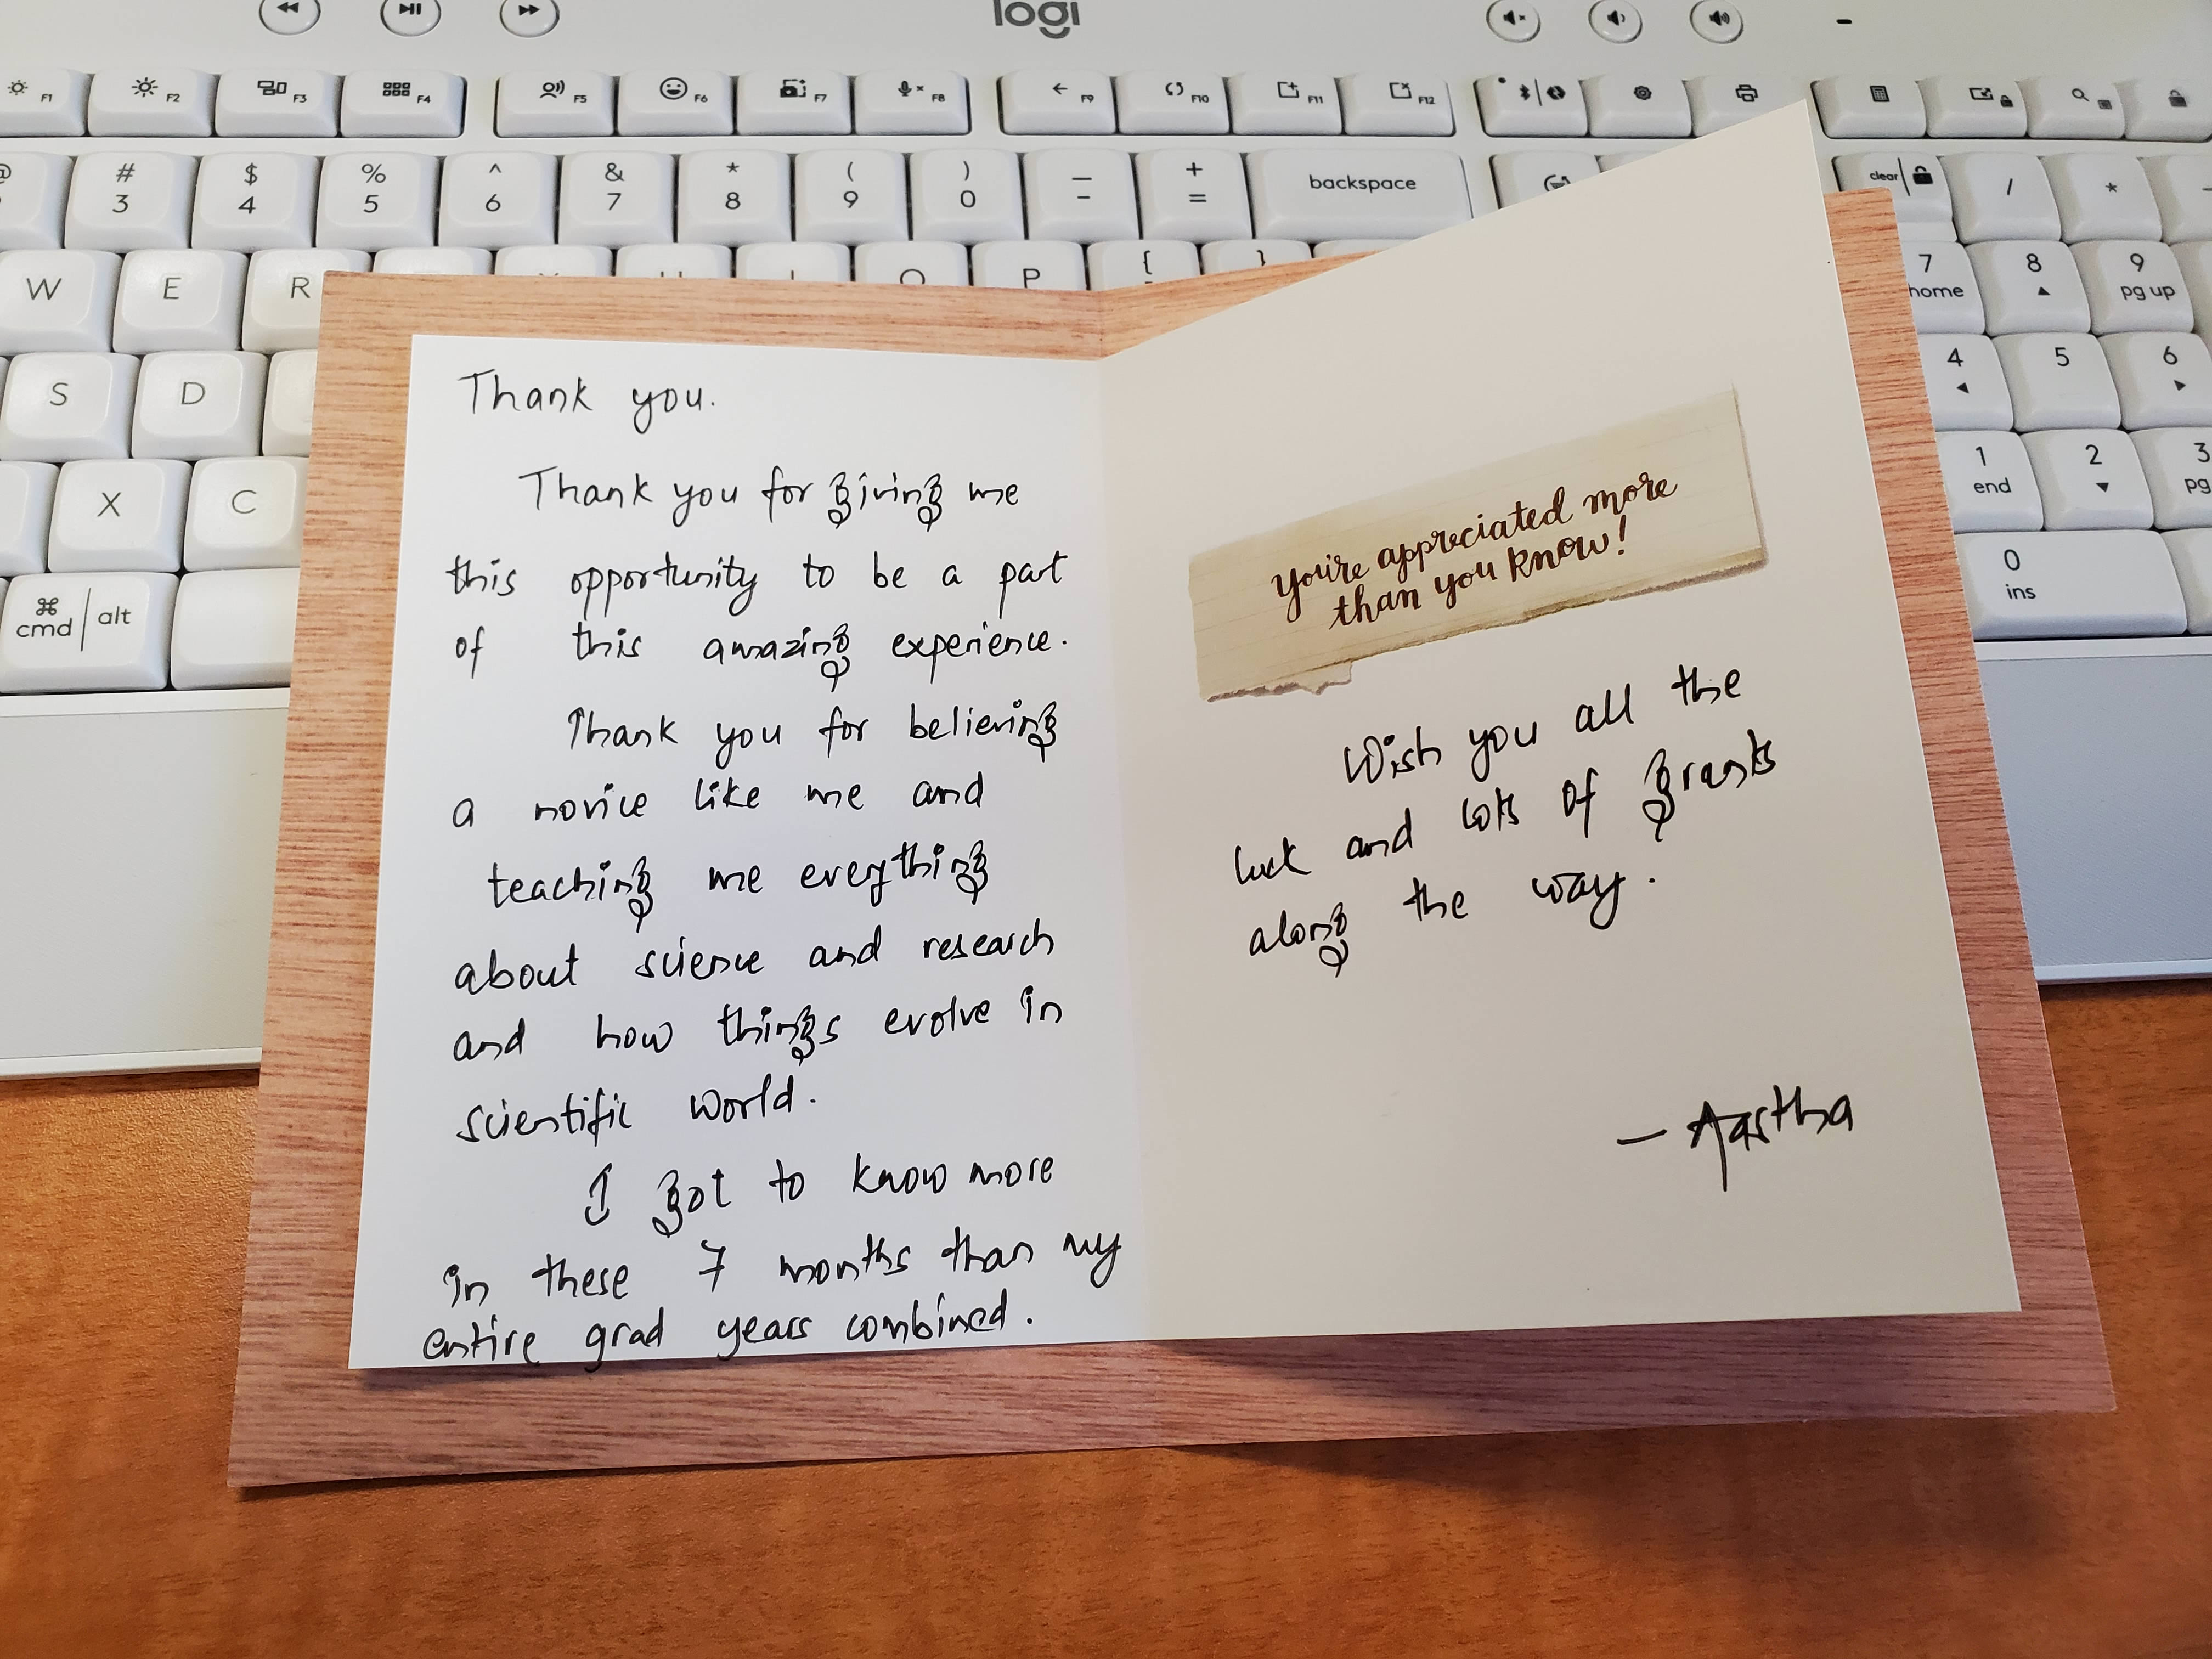 logi
F1 F2 F3 F4 F5 F6 F7 F8 F9 F10 F11 F12
# $ % ^ & * ( ) — +
3 4 5 6 7 8 9 0 - = backspace clear / *
W E R O P { } 7 home 8 9 pg up
S D 4 5 6
X C 1 end 2 3 pg
cmd alt 0 ins
Thank you.
Thank you for giving me
this opportunity to be a part
of this amazing experience.
Thank you for believing
a novice like me and
teaching me everything
about science and research
and how things evolve in
scientific world.
I got to know more
in these 7 months than my
entire grad years combined.
you're appreciated more
than you know!
Wish you all the
luck and lots of grants
along the way.
— Aastha